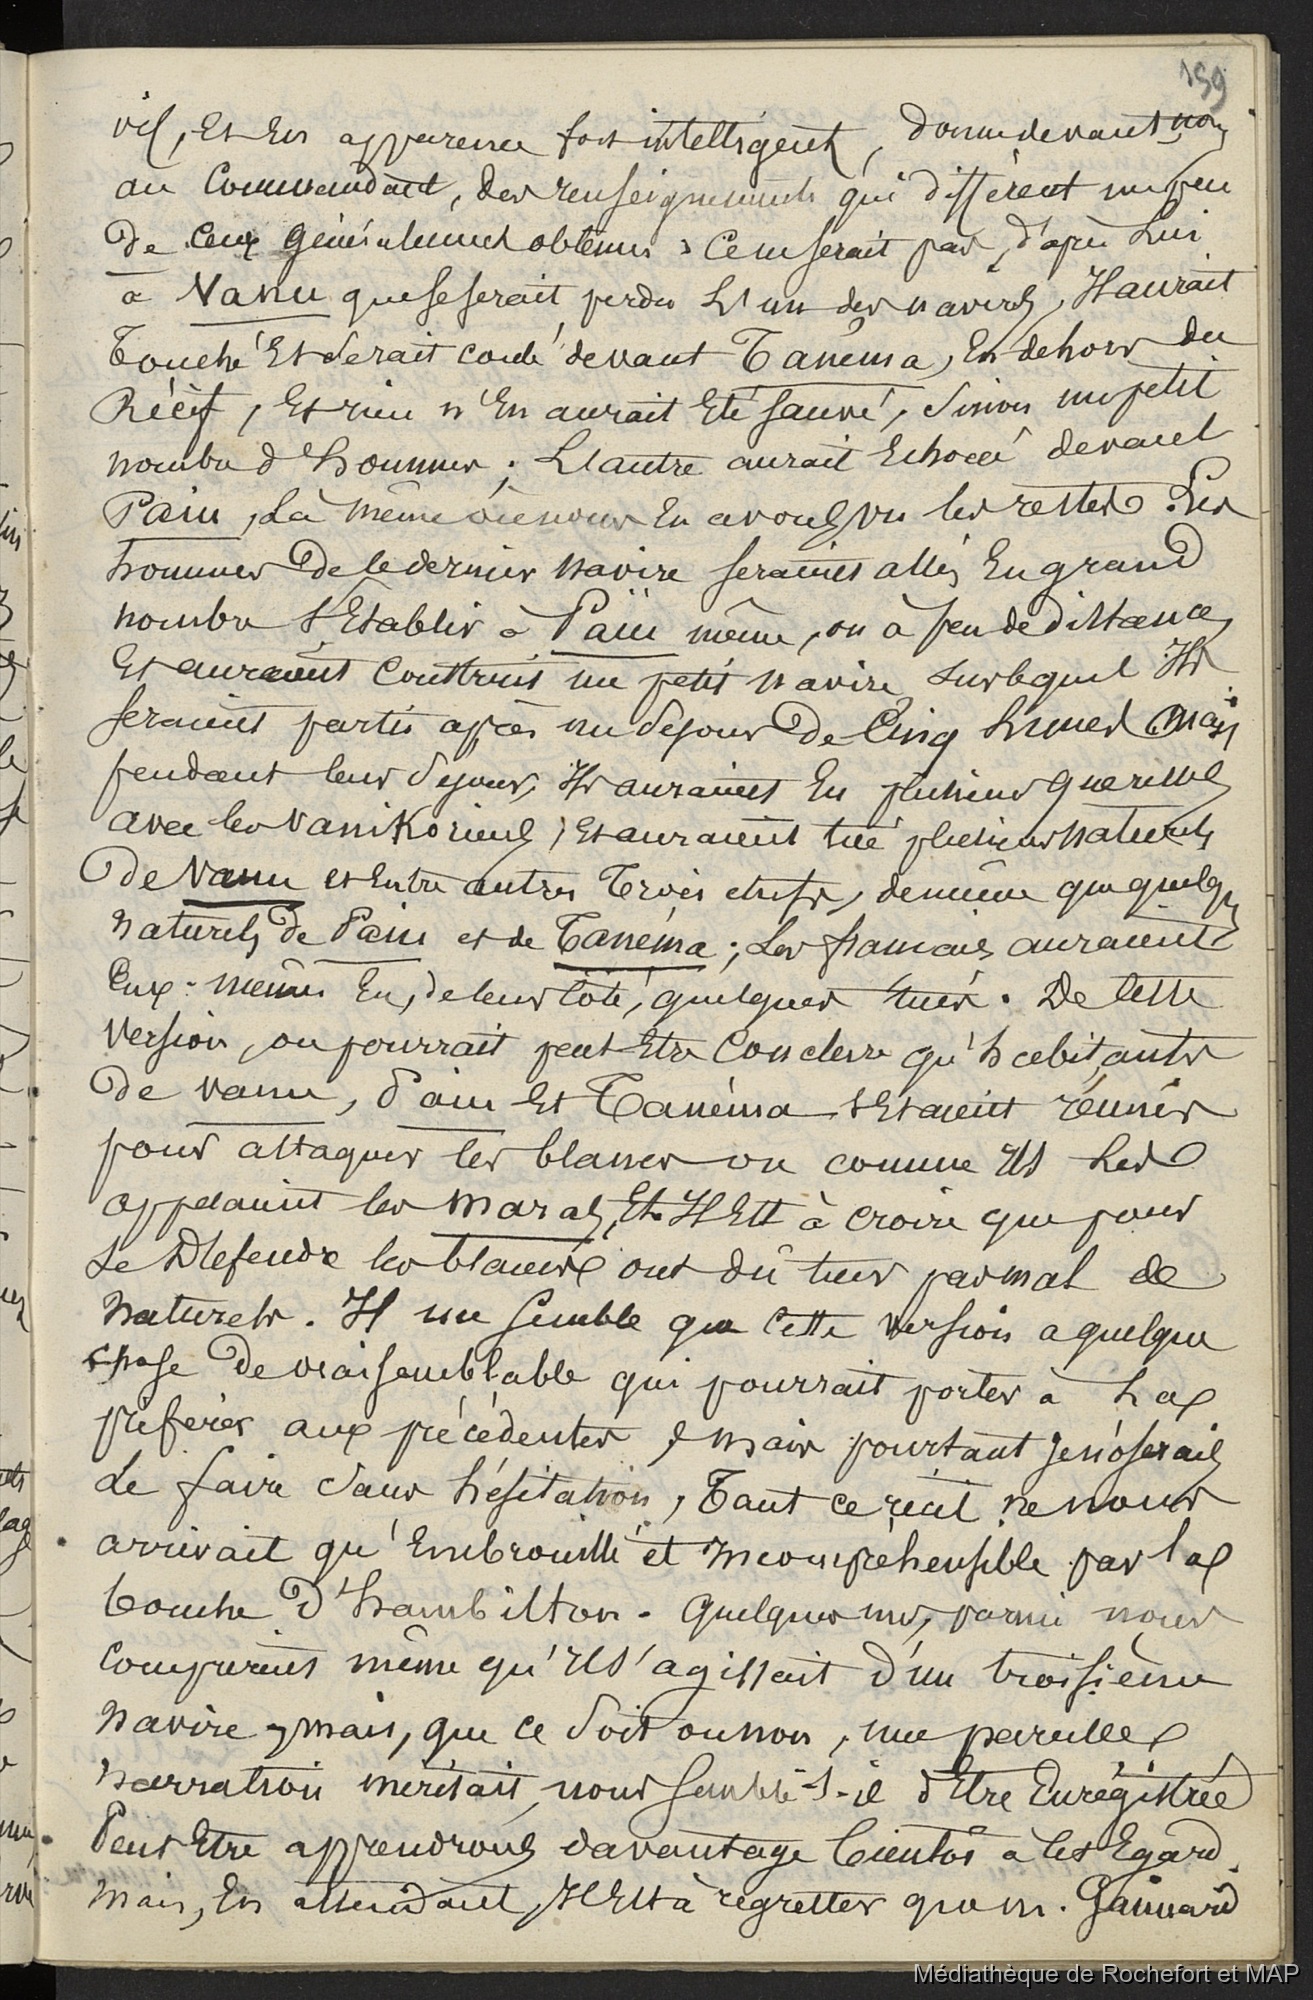 159
vif, Et En apparence fort intelligent, donna devant nous
au Commandant, des renseignements qui diffèrent un peu
De Ceux Généralement obtenus : Ce ne serait pas, d'après Lui
à Vanu que se serait perdu L'un des navires, Il aurait
Touché Et Serait coulé devant Tanéma, En dehors du
Récif, Et rien n'En aurait Eté sauvé, Sinon un petit
nombre d'hommes ; L'autre aurait Echoué devant
Païu, Là même où nous En avons vu les restes. Les
hommes De ce dernier navire seraient allés En grand
nombre s'Etablir à Païu même, ou à peu de distance,
Et auraient Construit un petit navire sur lequel Ils
seraient partis après un séjour De Cinq Lunes. Mais
pendant leur séjour, Ils auraient Eu plusieurs querelles
avec les Vanikoriens, Et auraient tué plusieurs naturels
De Vanu et Entre autres Trois chefs, de même que quelques
naturels de Païu et de Tanéma ; Les français auraient
Eux-mêmes Eu, de leur Côté, quelques tués. De Cette
Version, on pourrait peut-Etre Conclure qu'habitants
De Vanu, Païu Et Tanéma s'Etaient réunis
pour attaquer les blancs ou comme Ils Les
appelaient les Maras, Et Il Est à croire que pour
se Défendre les blancs ont dû tuer pas mal de
Naturels. Il me semble que Cette version a quelque
chose De vraisemblable qui pourrait porter à La
préférer aux précédentes, mais pourtant je n'oserais
Le faire Sans hésitation, Tant ce récit ne nous
arrivait qu'Embrouillé et Incompréhensible par la
bouche D'hambilton. Quelques uns, parmi nous
Comprirent même qu'Il s'agissait d'un troisième
navire, mais, que ce Soit ou non, une pareille
narration méritait, nous semble-t-il d'Etre Enrégistrée
Peut Etre apprendrons davantage bientôt à cet Egard.
Mais, En attendant, Il Est à regretter que M. Gaimard
Médiathèque de Rochefort et MAP